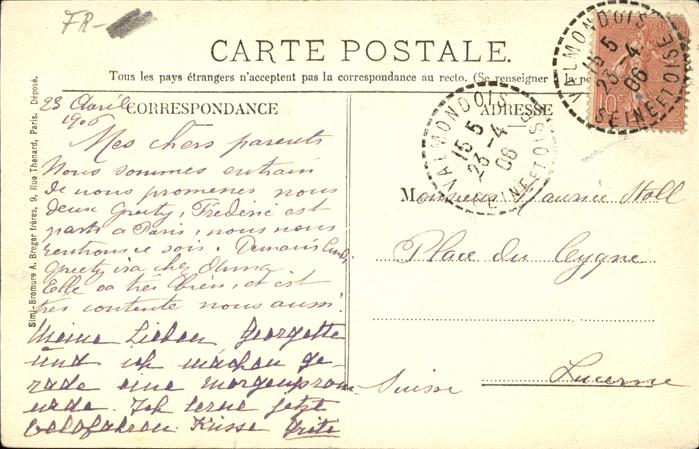 FR-
CARTE POSTALE.
Tous les pays étrangers n'acceptent pas la correspondance au recto. (Se renseigner à la po
CORRESPONDANCE
ADRESSE
Simili-Bromure A. Breger frères, 9, Rue Thenard, Paris. Déposé.
VALMONDOIS
15 5
23 -4
06
SEINE ET OISE
VALMONDOIS
15 5
23 -4
06
SEINE ET OISE
10c
23 Avril
1906
Mes chers parents
Nous sommes entrain
de nous promener nous
deux Greety, Frédéric est
parti a Paris, nous nous
rentrons ce soir. Demain
Greety ira chez
Elle va très bien, et est
très contente nous aussi.
Meine Lieben Georgette
und ich machen ge-
rade eine Morgenprom-
nade. Ich lerne jetzt
Velofahren. Küsse Grite
Monsieur Maurice Stoll
Place du Cygne
Lucerne
Suisse